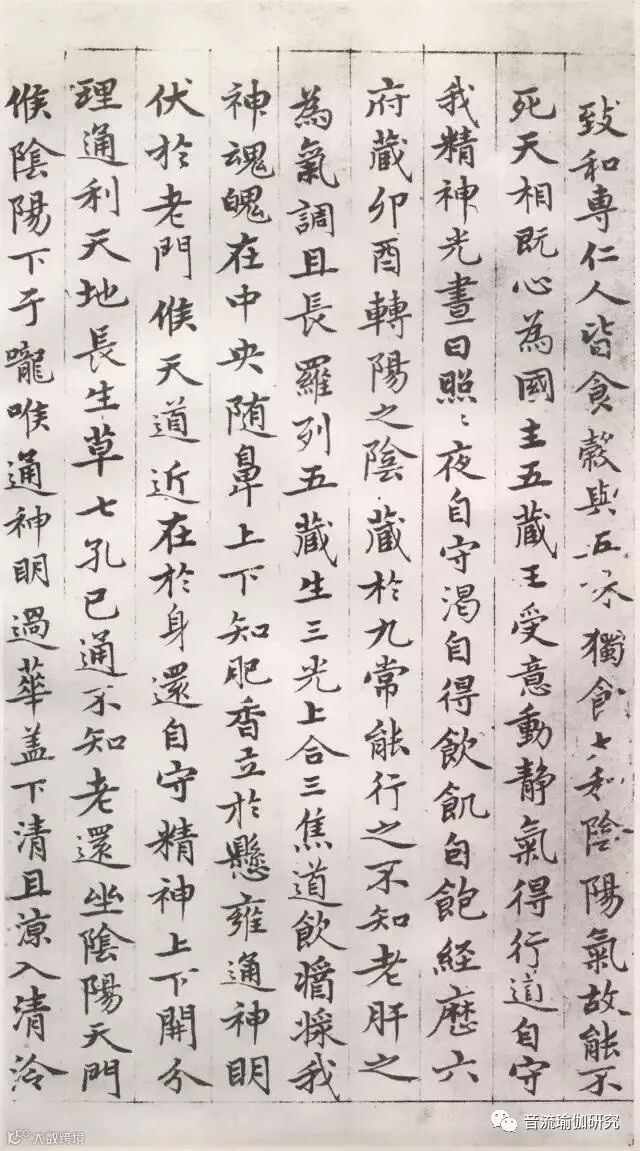 致和専仁人皆食穀與五味獨食和陰陽氣故能不
死天相既心為國主五藏王受意動静氣得行道自守
我精神光晝日照〻夜自守渴自得飲飢自飽経歷六
府藏卯酉轉陽之陰藏於九常能行之不知老肝之
為氣調且長羅列五藏生三光上合三焦道飲漿我
神魂魄在中央随鼻上下知肥香立於懸雍通神明
伏於老門候天道近在於身還自守精神上下開分
理通利天地長生草七孔已通不知老還坐陰陽天門
候陰陽下于嚨喉通神明過華盖下清且涼入清泠
音流瑜伽研究
大数跨境